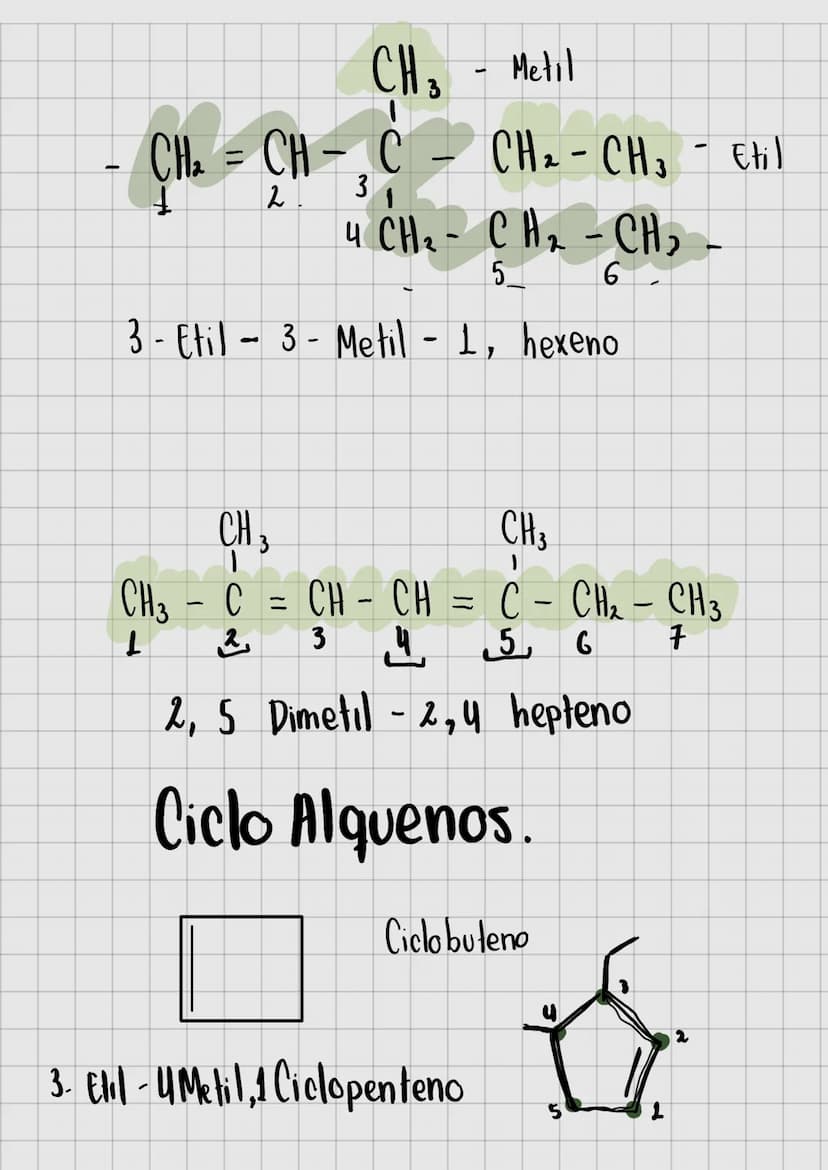 CH₃ - Metil
- CH₂ = CH - C - CH₂ - CH₃ - Etil
1 2. 3
4 CH₂ - CH₂ - CH₃ -
5 6
3 - Etil - 3 - Metil - 1, hexeno
CH₃ CH₃
CH₃ - C = CH - CH = C - CH₂ - CH₃
1 2 3 4 5 6 7
2, 5 Dimetil - 2,4 hepteno
Ciclo Alquenos.
Ciclobuteno
3
4
2
3. Etil - 4 Metil, 1 Ciclopenteno
5 1